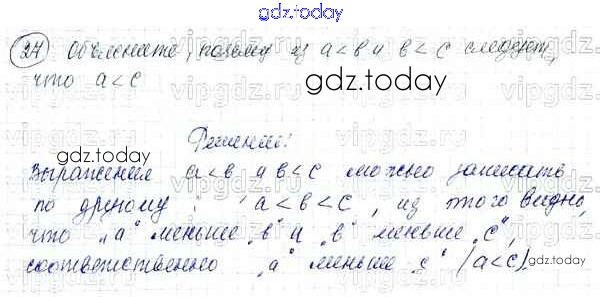 gdz.today
27 Объясните, почему из a < b и b < c следует,
что a < c
Решение:
gdz.today
Выражения a < b и b < c можно записать
по другому : a < b < c, из этого видно,
что „a" меньше „b" и „b" меньше „c",
соответственно „a" меньше „c" (a < c).
gdz.today